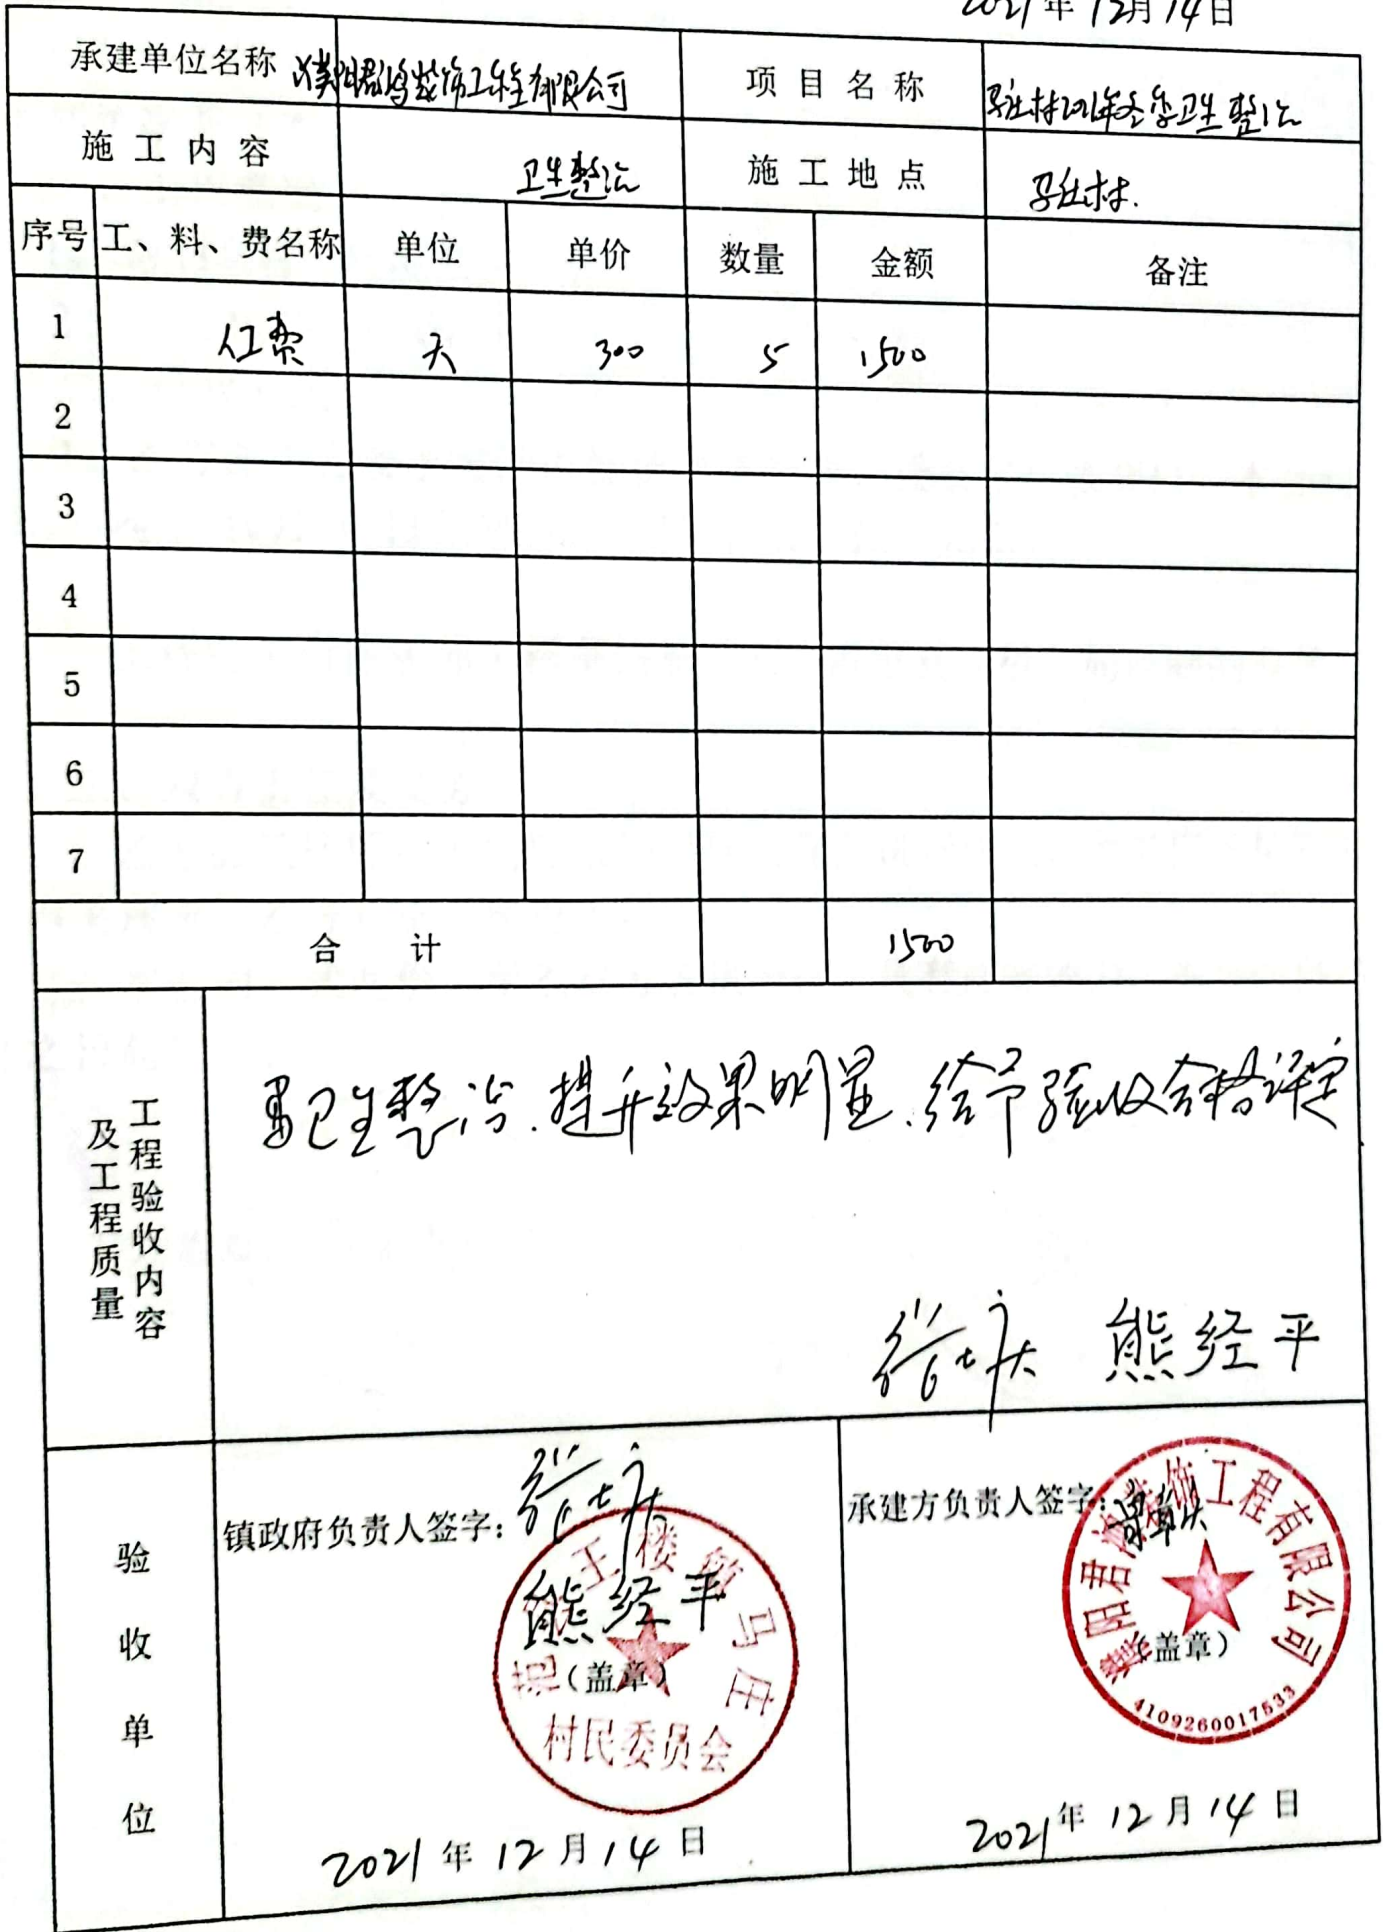 2021年12月14日
承建单位名称 濮阳君鸿装饰工程有限公司 项目名称 马庄村2021年冬季卫生整治
施工内容 卫生整治 施工地点 马庄村.
序号 工、料、费名称 单位 单价 数量 金额 备注
1 人工费 天 300 5 1500
2
3
4
5
6
7
合计 1500
工程验收内容
及工程质量
卫生整治.提升效果明显.给予验收合格评定
熊经平
验收单位
镇政府负责人签字:
熊经平
(盖章)
王楼镇马庄
村民委员会
2021年12月14日
承建方负责人签字:
濮阳君鸿装饰工程有限公司
(盖章)
4109260017533
2021年12月14日